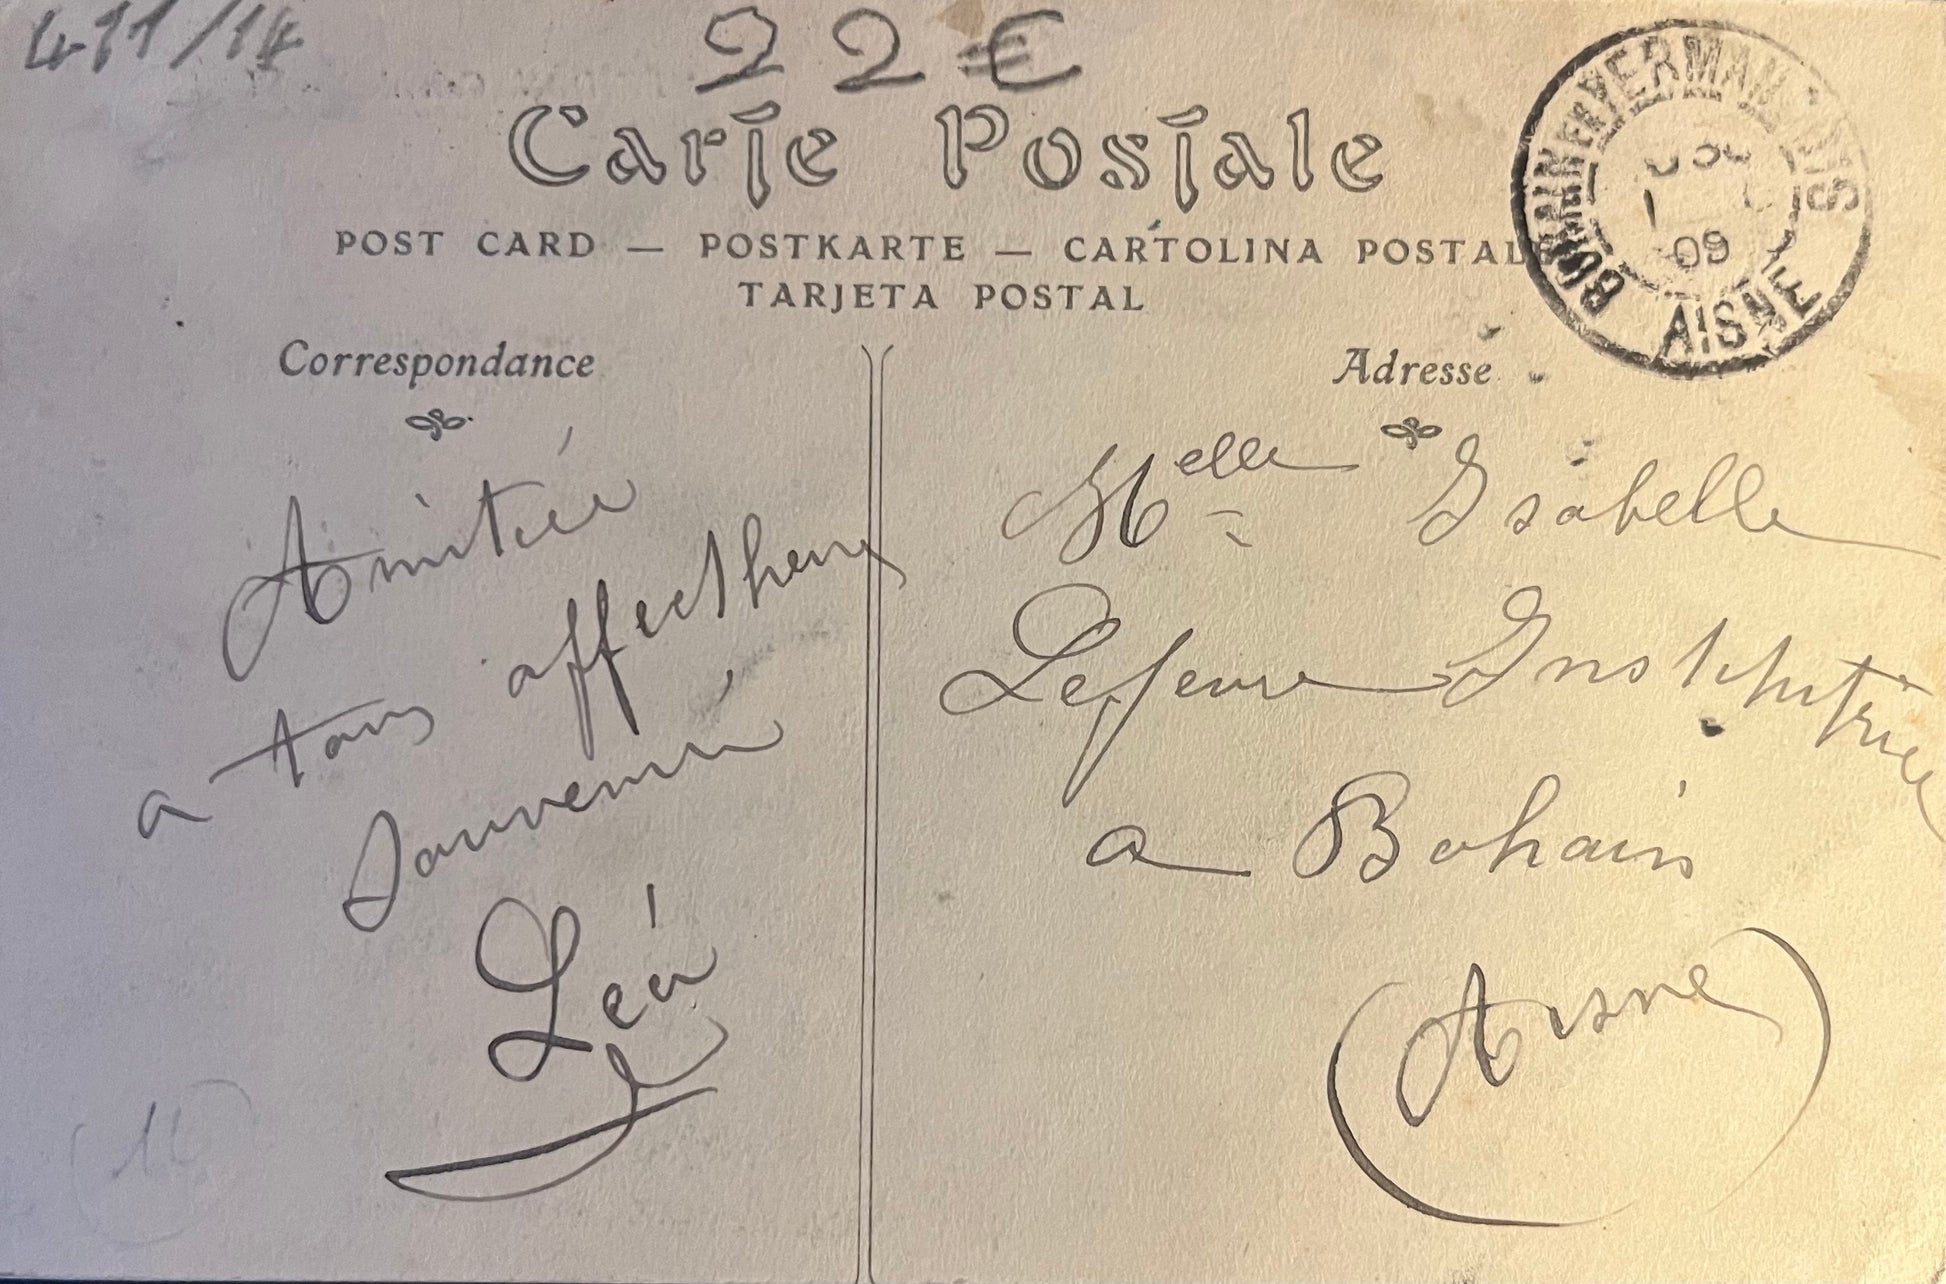 22€
Carte Postale
POST CARD — POSTKARTE — CARTOLINA POSTALE
TARJETA POSTAL
BOHAIN EN VERMANDOIS
09
AISNE
Correspondance
Amitié
a tous
Souvenir
Adresse
Melle Isabelle
Lefevre Institutrice
a Bohain
(Aisne)